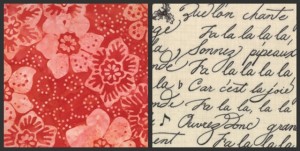 Qu'on chante
la Fa la la la la,
Sonnez pipeaux
nde Fa la la la la,
Car c'est la joie
Fa la la, la la
Ouvrez Donc gran
ent Fa la la la la